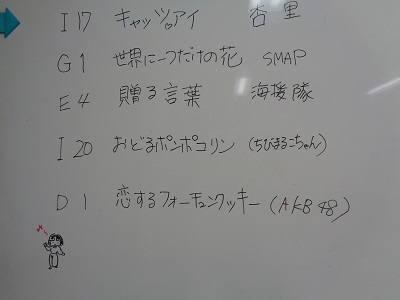 I 17 キャッツ。アイ 杏里
G 1 世界に一つだけの花 SMAP
E 4 贈る言葉 海援隊
I 20 おどるポンポコリン (ちびまるこちゃん)
D 1 恋するフォーチュンクッキー (AKB48)